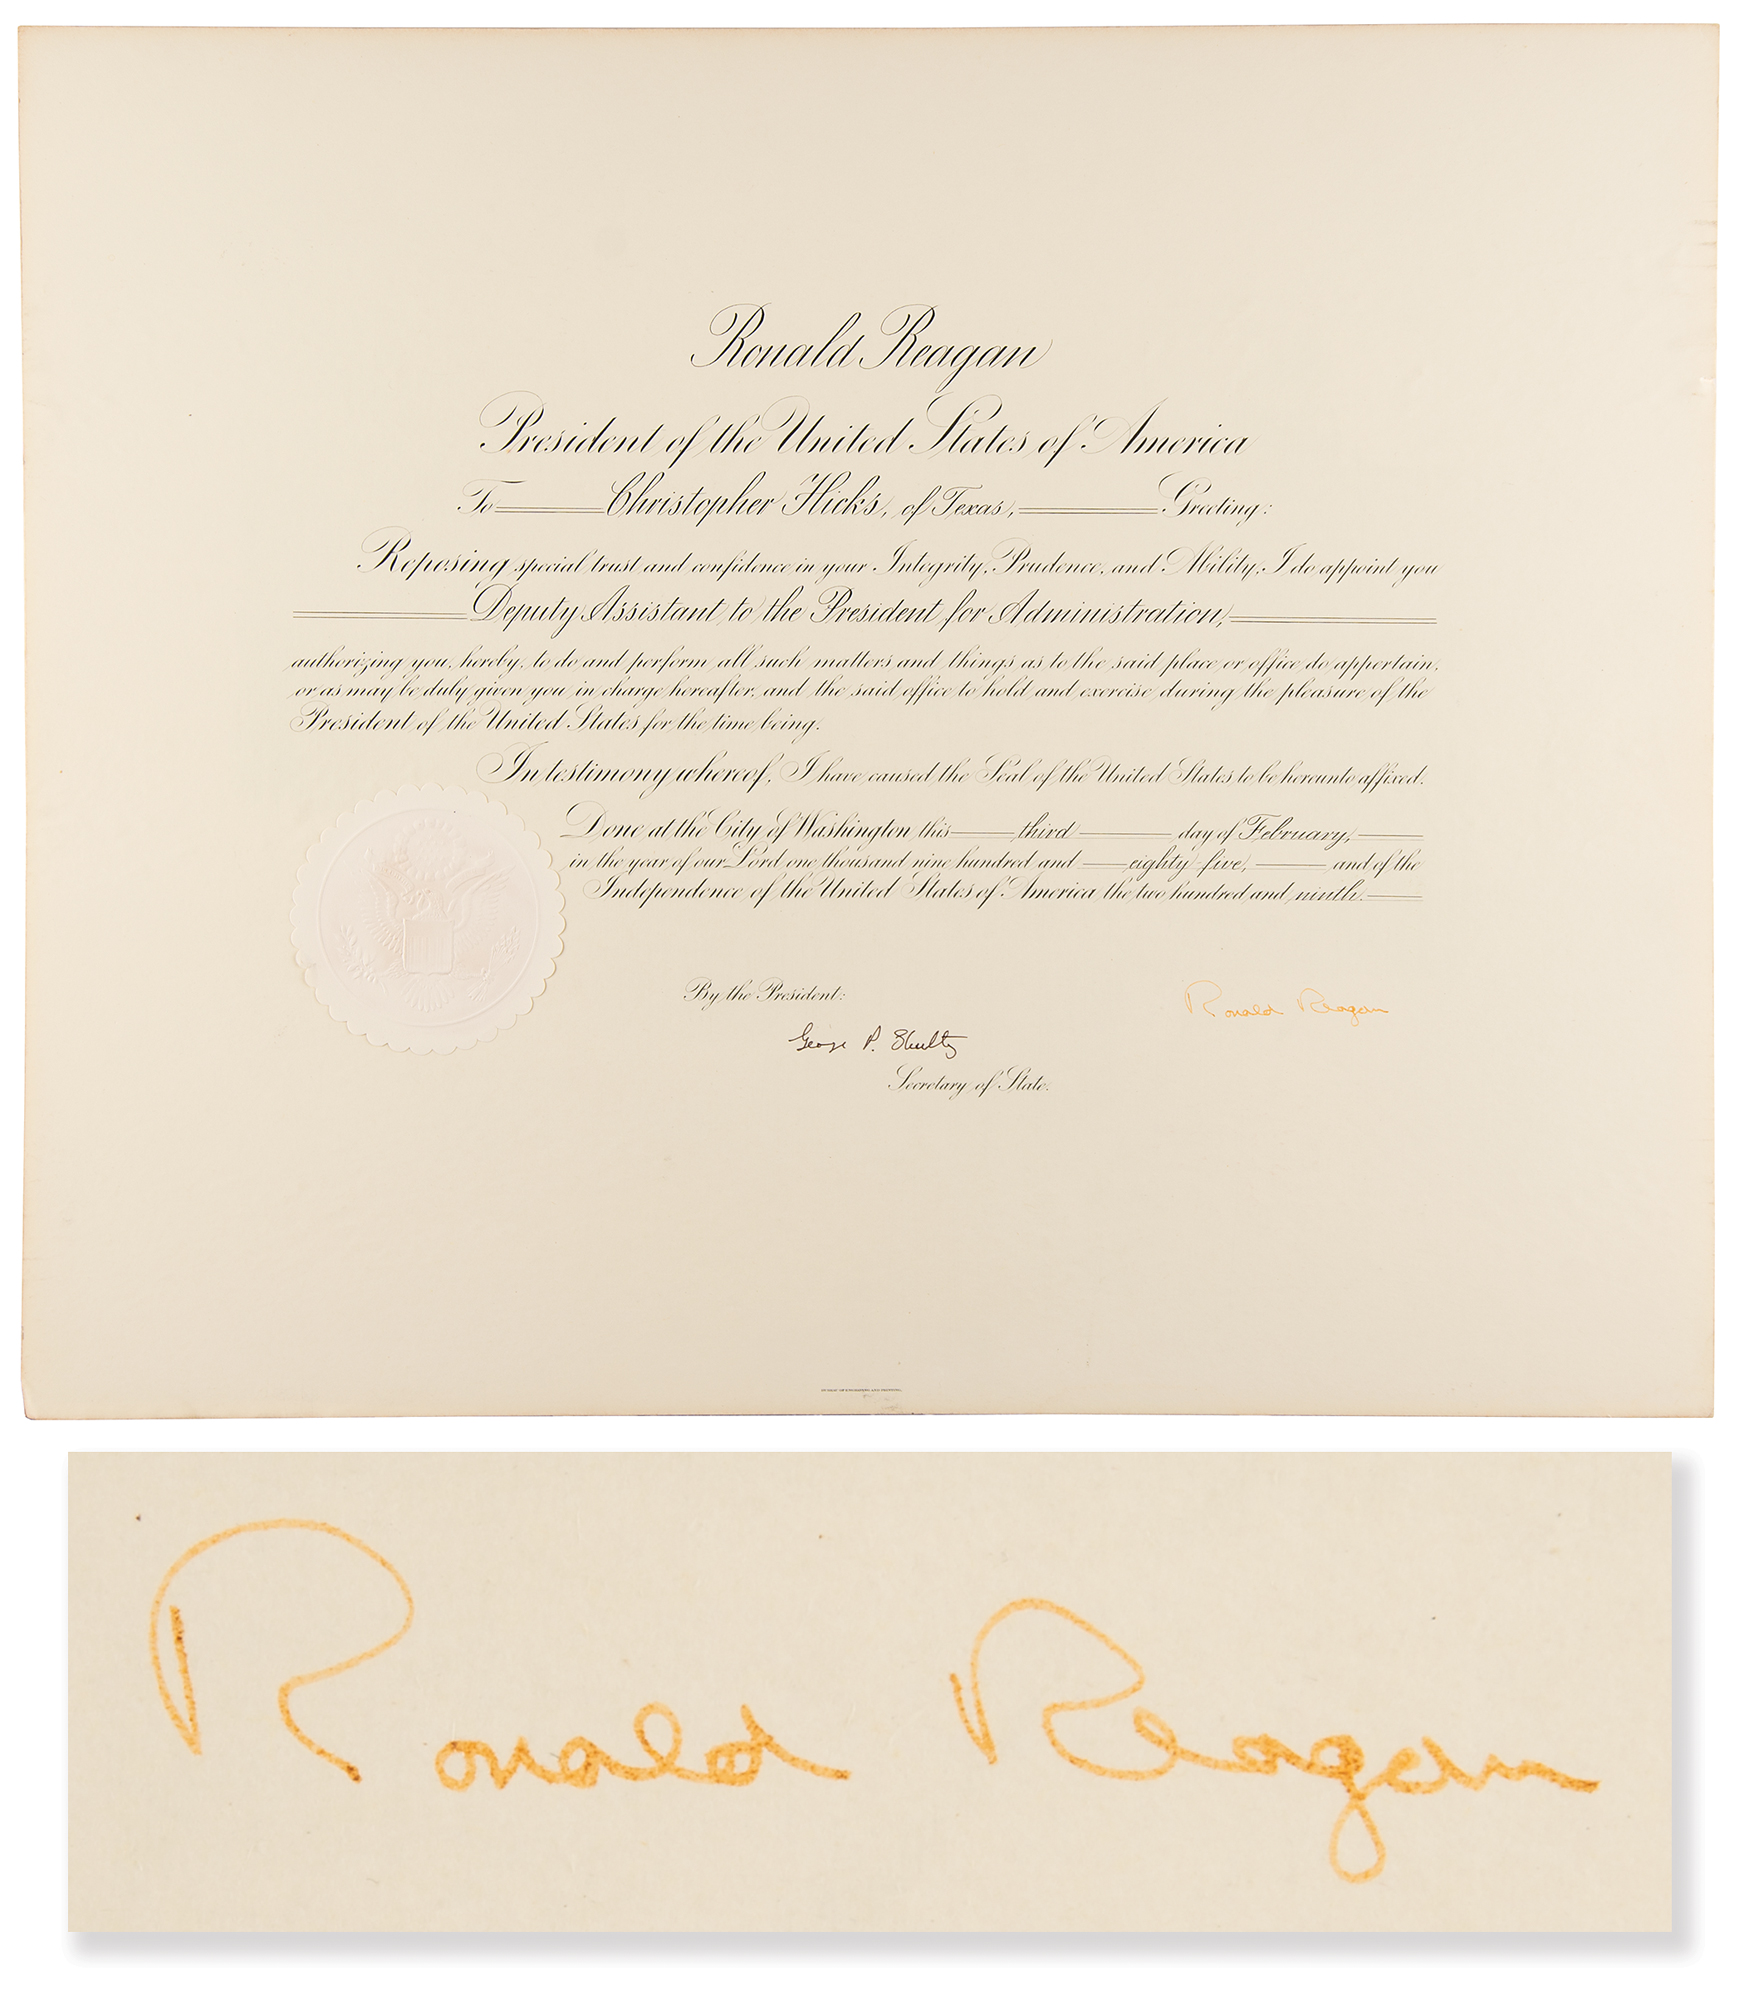 Ronald Reagan
President of the United States of America
To Christopher Hicks, of Texas, Greeting:
Reposing special trust and confidence in your Integrity, Prudence, and Ability, I do appoint you
Deputy Assistant to the President for Administration,
authorizing you, hereby, to do and perform all such matters and things as to the said place or office do appertain,
or as may be duly given you in charge hereafter, and the said office to hold and exercise during the pleasure of the
President of the United States for the time being.
In testimony whereof, I have caused the Seal of the United States to be hereunto affixed.
Done at the City of Washington this third day of February,
in the year of our Lord one thousand nine hundred and eighty-five, and of the
Independence of the United States of America the two hundred and ninth.
By the President:
Ronald Reagan
George P. Shultz
Secretary of State.
BUREAU OF ENGRAVING AND PRINTING.
Ronald Reagan